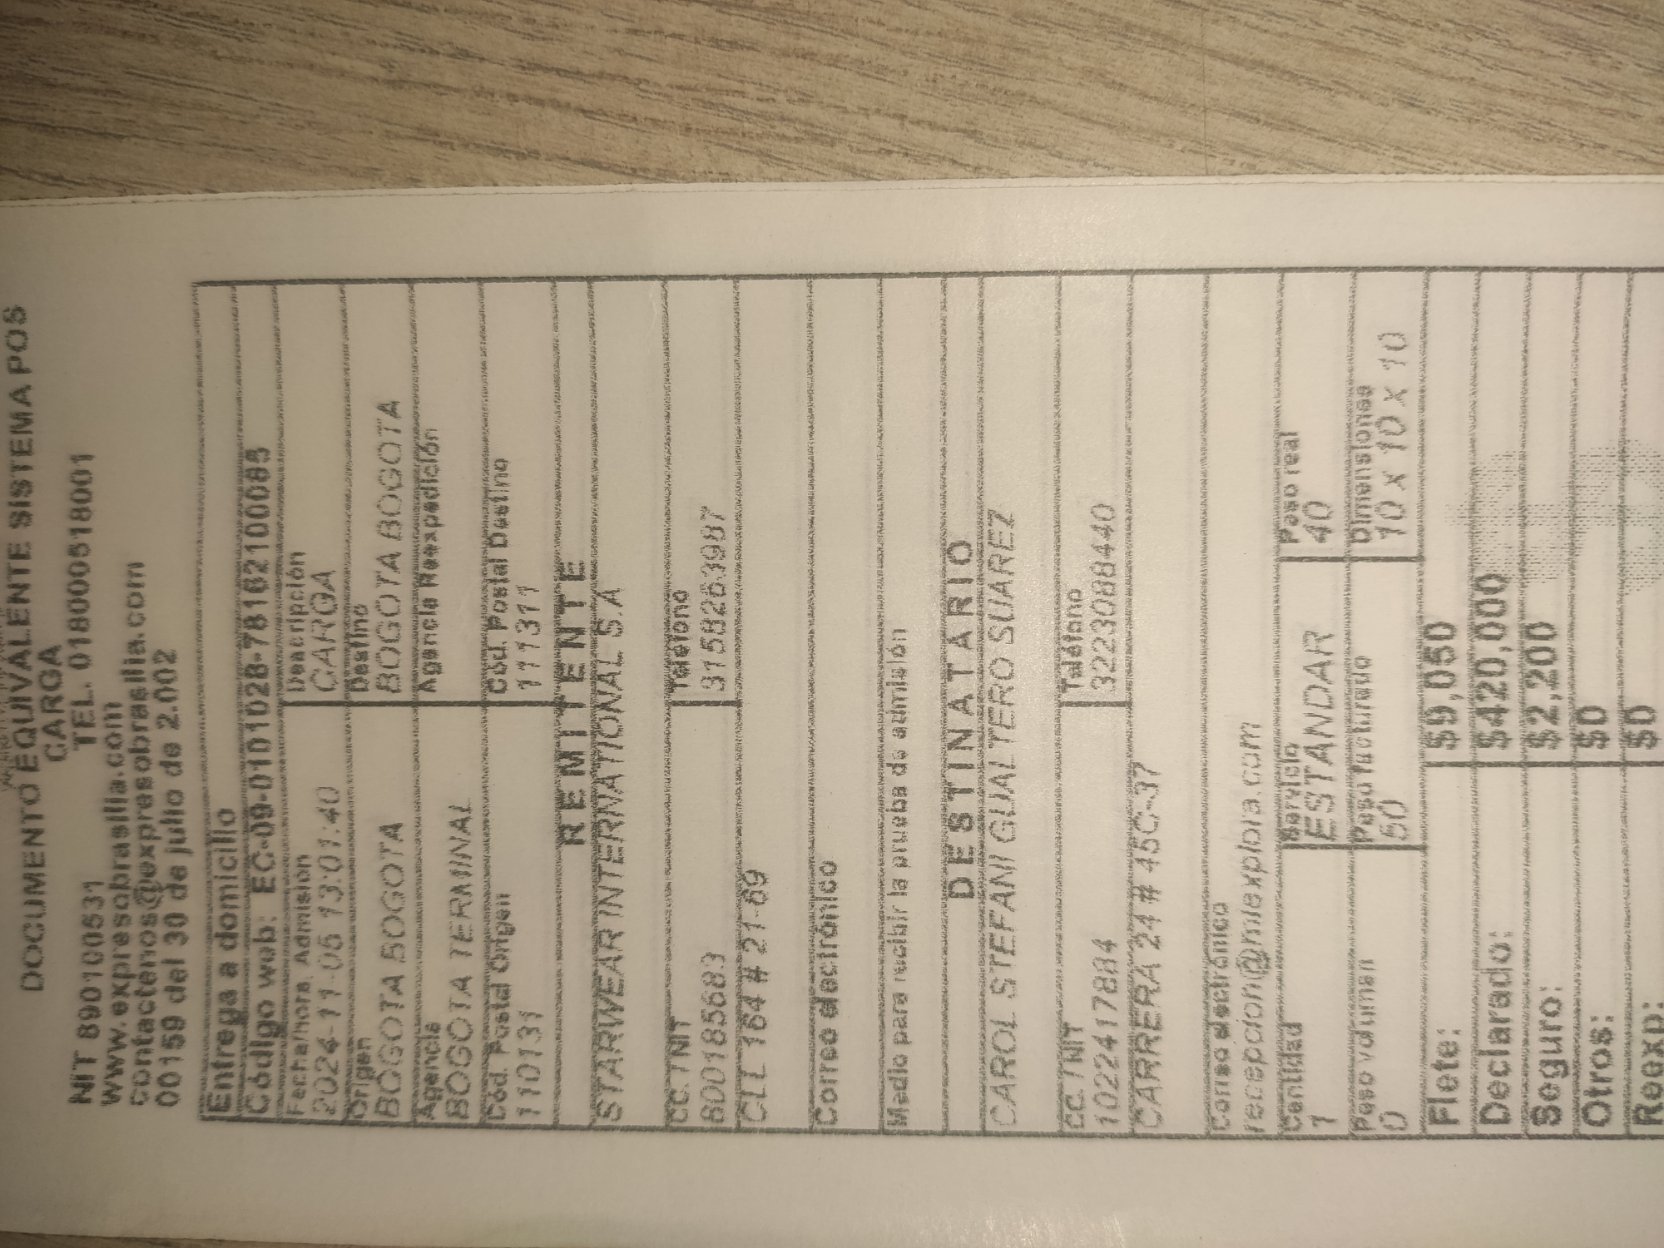 DOCUMENTO EQUIVALENTE SISTEMA POS
CARGA
NIT 890100531 TEL. 018000518001
www.expresobrasilia.com
contactenos@expresobrasilia.com
00159 del 30 de julio de 2.002
Entrega a domicilio
Código web: EC-09-0101028-78162100085
Fecha/hora. Admisión Descripción
2024-11-05 13:01:40 CARGA
Origen Destino
BOGOTA BOGOTA BOGOTA BOGOTA
Agencia Agencia Reexpedición
BOGOTA TERMINAL
Cód. Postal Origen Cód. Postal Destino
110131 111311
REMITENTE
STARWEAR INTERNATIONAL S.A
CC. / NIT Teléfono
800185683 3158263987
CLL 164 # 21-69
Correo electrónico
Medio para recibir la prueba de admisión
DESTINATARIO
CAROL STEFANI GUALTERO SUAREZ
CC. / NIT Teléfono
1022417884 3223088440
CARRERA 24 # 45C-37
Correo electrónico
recepcion@mlexplora.com
Cantidad Servicio Peso real
1 ESTANDAR 40
Peso volumen Peso facturado Dimensiones
0 50 10 x 10 x 10
Flete: $9,050
Declarado: $420,000
Seguro: $2,200
Otros: $0
Reexp: $0